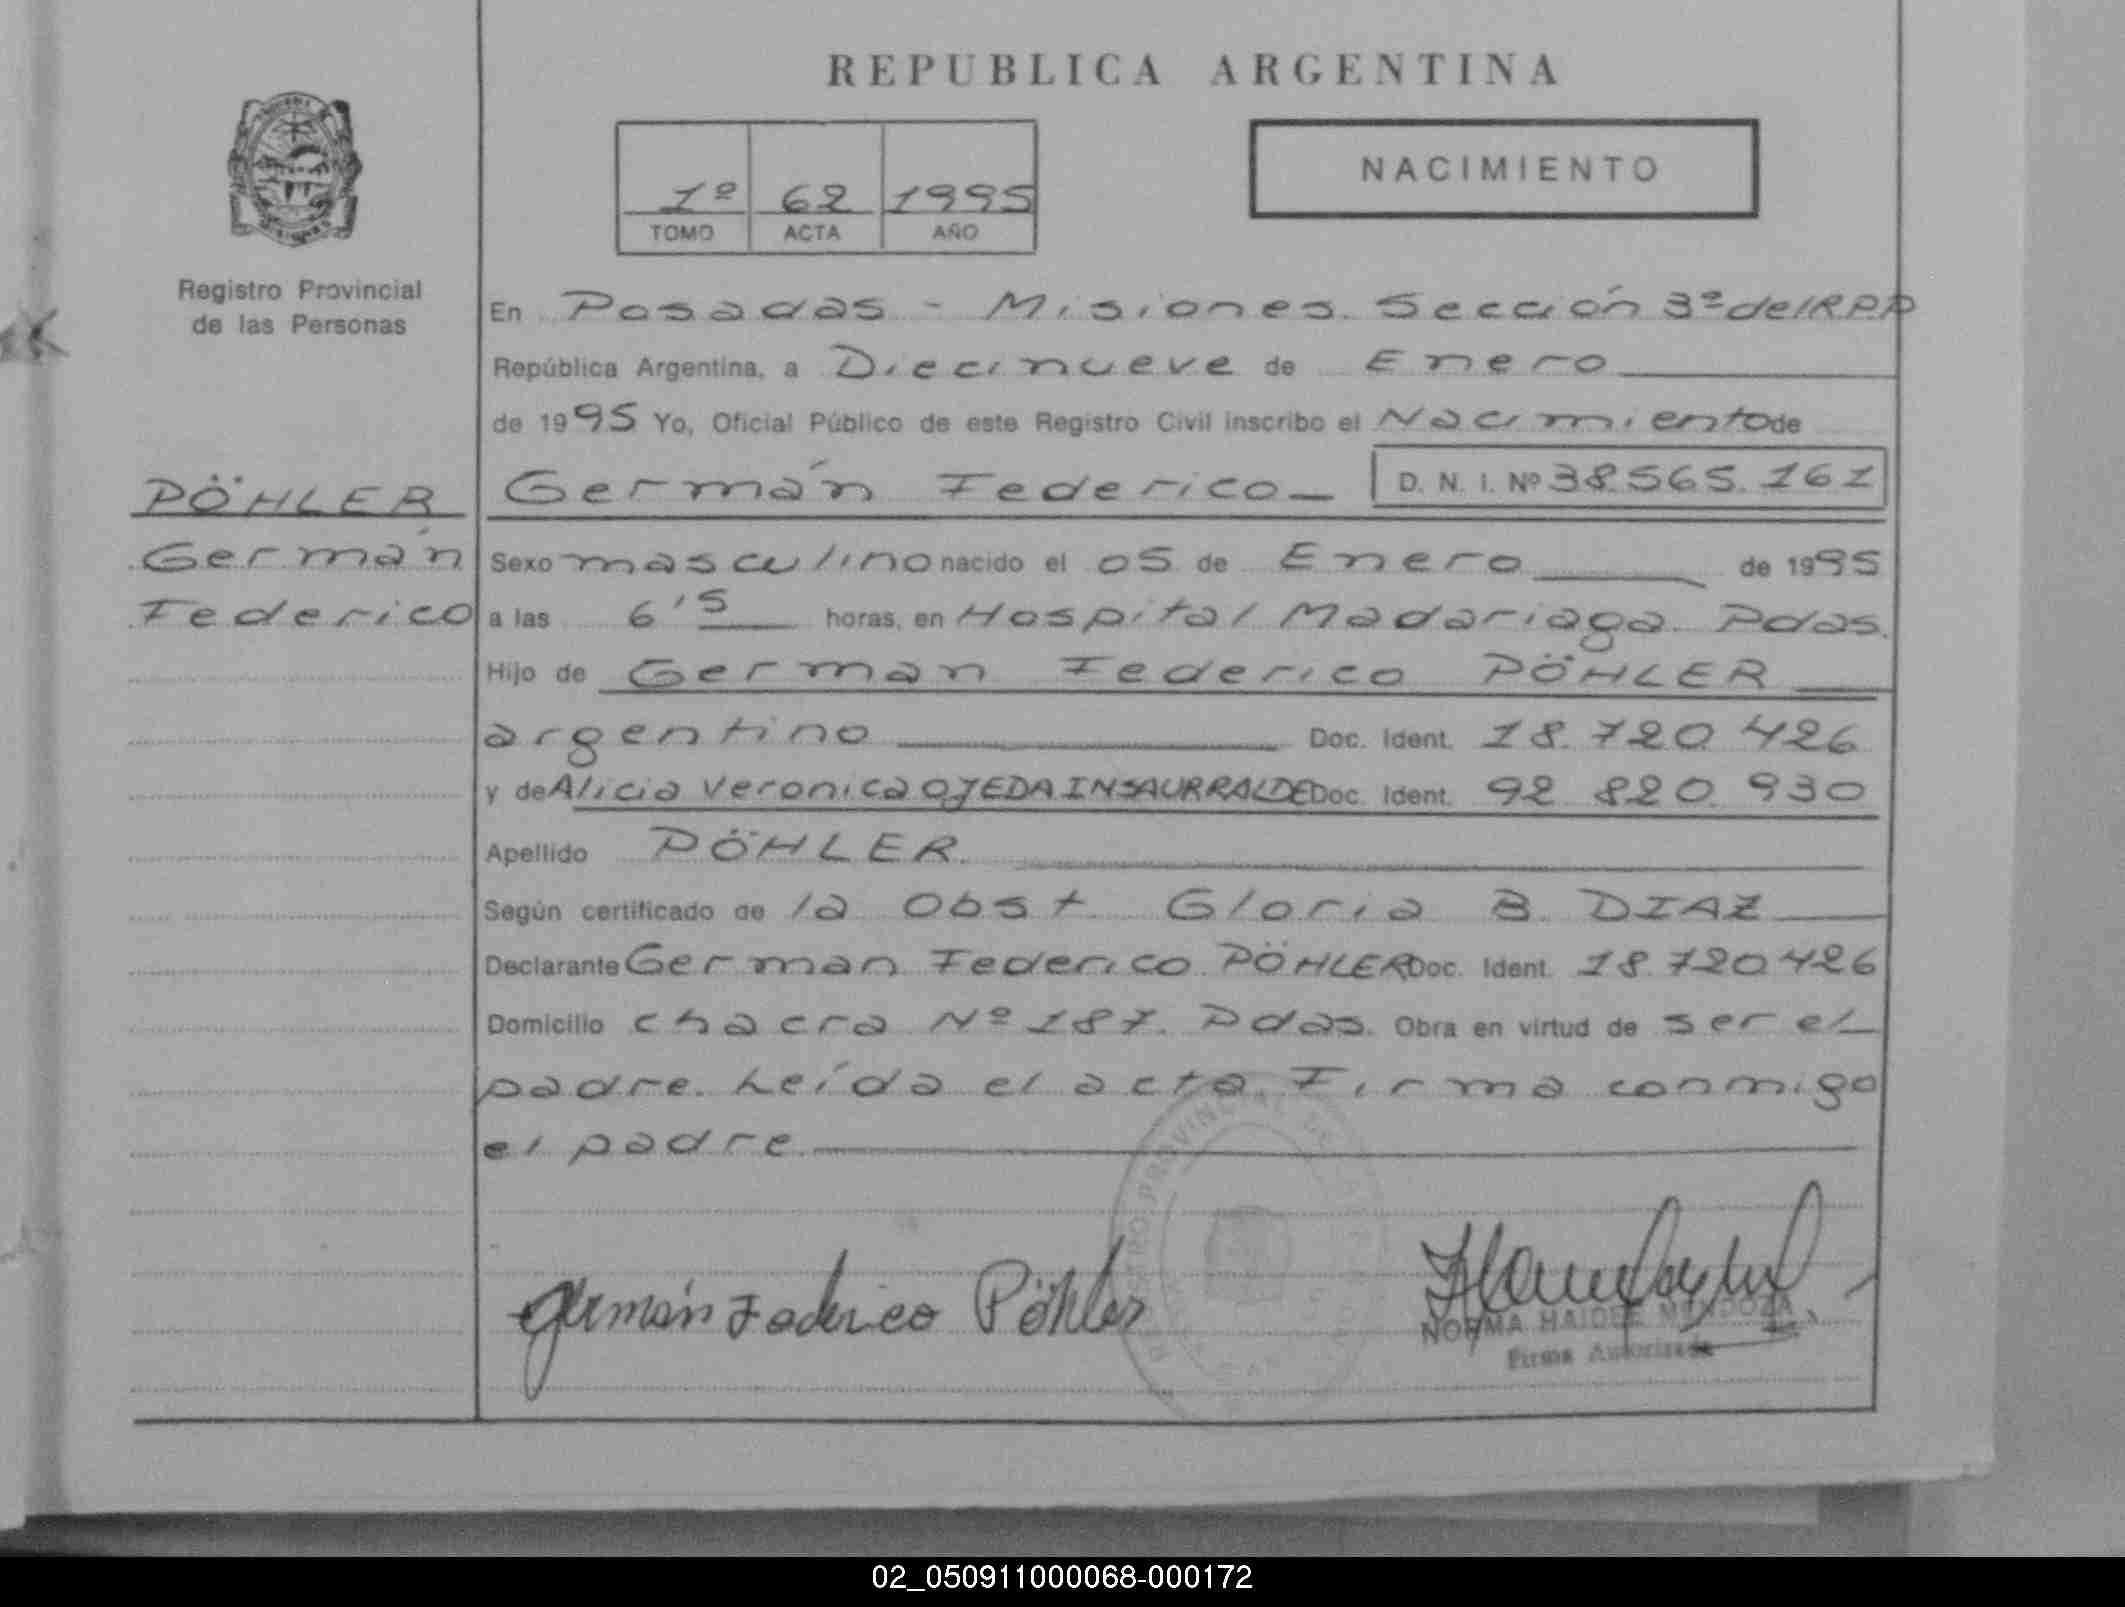 REPUBLICA ARGENTINA
NACIMIENTO
1º 62 1995
TOMO ACTA AÑO
Registro Provincial
de las Personas
PÖHLER
Germán
Federico
En Posadas - Misiones. Sección 3ª del R.P.P
República Argentina, a Diecinueve de Enero
de 1995 Yo, Oficial Público de este Registro Civil inscribo el Nacimiento de
Germán Federico D. N. I. Nº 38.565.161
Sexo masculino nacido el 05 de Enero de 1995
a las 6'5 horas, en Hospital Madariaga. Pdas.
Hijo de German Federico PÖHLER
argentino Doc. Ident. 18.720.426
y de Alicia Veronica OJEDA INSAURRALDE Doc. Ident. 92 820 930
Apellido PÖHLER.
Según certificado de la Obst. Gloria B. DIAZ
Declarante German Federico PÖHLER Doc. Ident. 18.720426
Domicilio chacra Nº 187. Pdas. Obra en virtud de ser el
padre. Leída el acta Firma conmigo
el padre.
germán Federico Pöhler
NORMA HAIDEE MENDOZA
Firma Autorizada
REGISTRO PROVINCIAL DE LAS
02_050911000068-000172